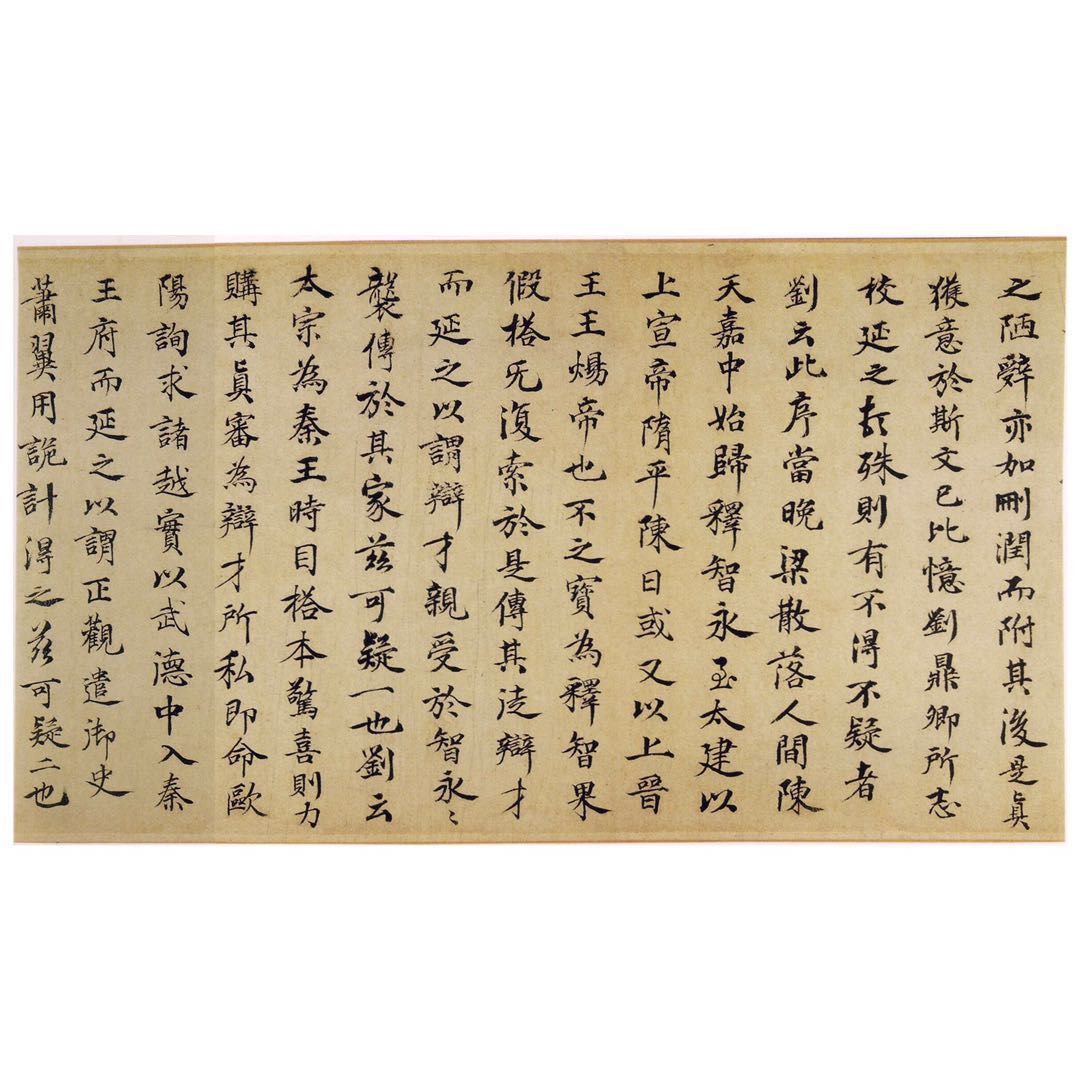 之陋辭亦加刪潤而附其後是真
獲意於斯文已比憶劉鼎卿所志
校延之尤殊則有不得不疑者
劉云此序當晚梁散落人間陳
天嘉中始歸釋智永至太建以
上宣帝隋平陳日或又以上晉
王王煬帝也不之寶為釋智果
假榙旡復索於是傳其徒辯才
而延之以謂辯才親受於智永〻
襲傳於其家茲可疑一也劉云
太宗為秦王時目榙本驚喜則力
購其眞審為辯才所私即命歐
陽詢求諸越實以武德中入秦
王府而延之以謂正觀遣御史
蕭翼用詭計得之茲可疑二也